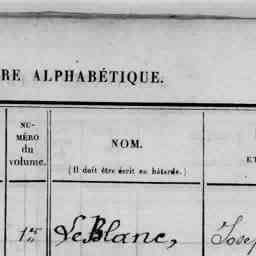 RE ALPHABÉTIQUE.
NU-
MÉRO
du
volume.
NOM.
(Il doit être écrit en bâtarde.)
1er LeBlanc,